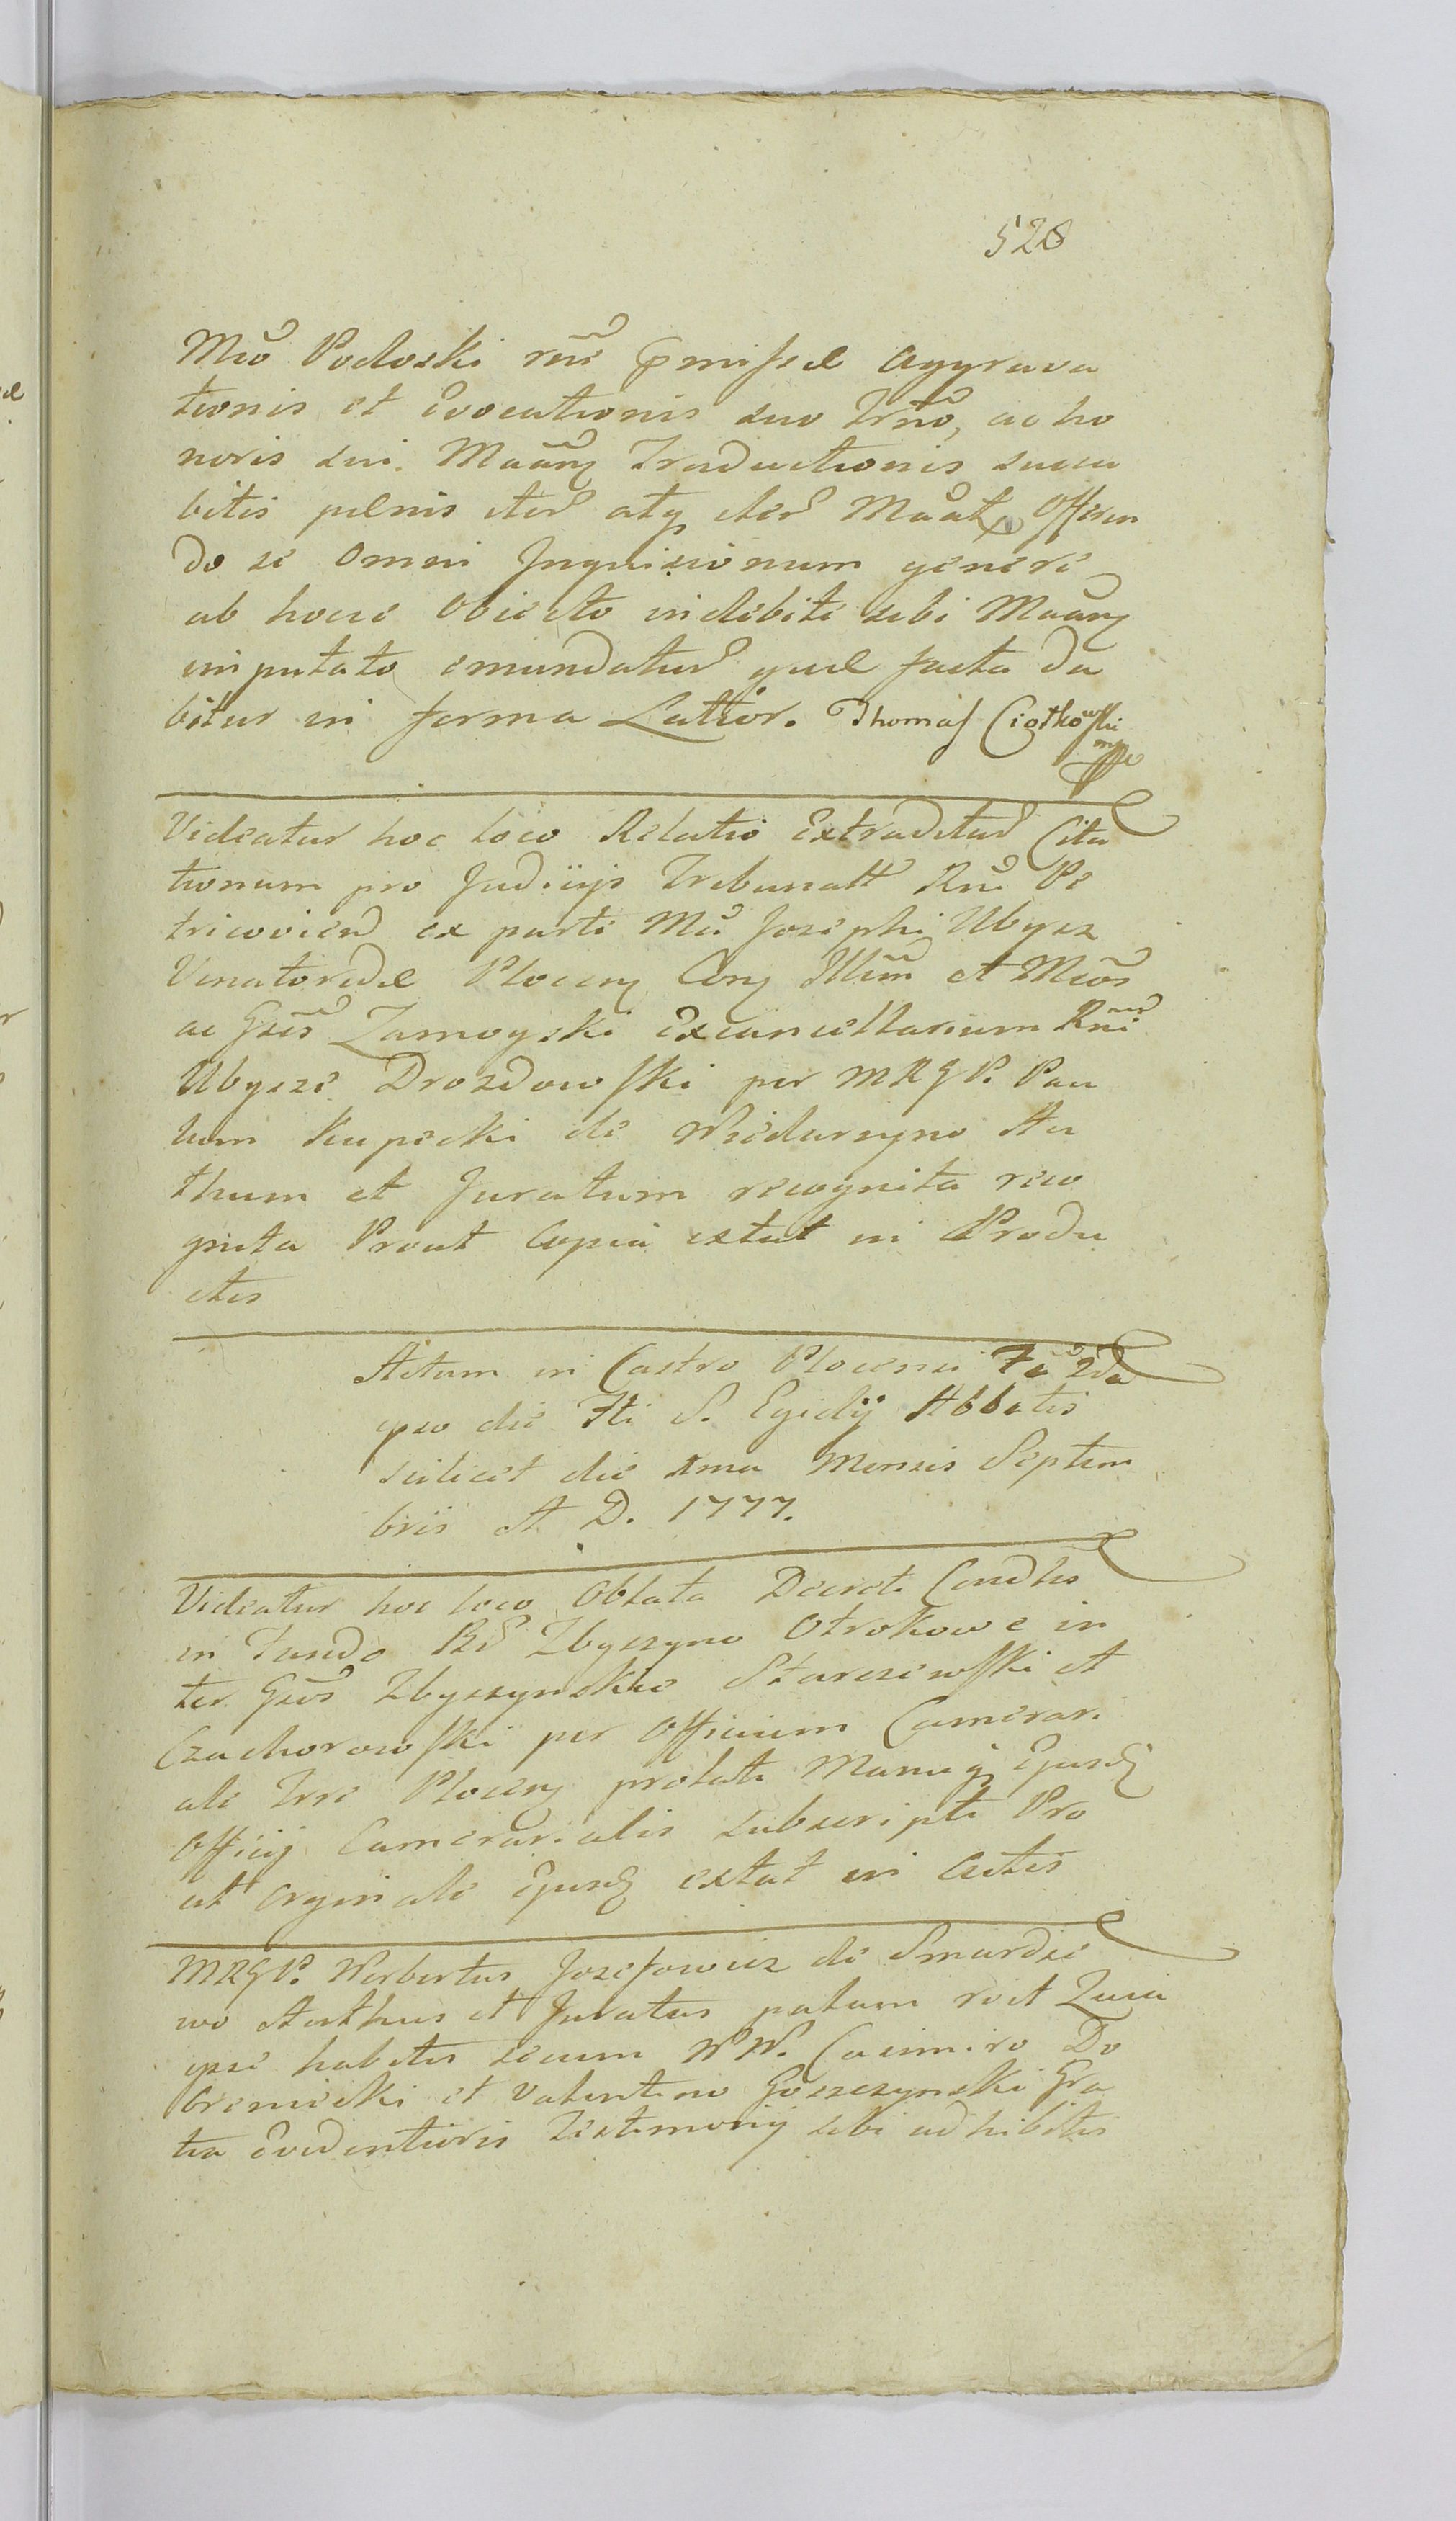 528
Mco Podoski rne praemissae aggrava
tionis et Evocationis suo Trno, ac ho
noris sui Maãnq Traductionis succu
bitis paenis iter atq iter Maãt Offeren
do se omni Inquisicionum genere
ab hocce Obiecto indebite sibi Maãnq
imputato emundatur quae facta da
bitur in forma Latior. Thomas Ciołkowski
mp
Videatur hoc loco Relatio Extraditar Cita
tionum pro Judiciis Tribunatt Rni Pe
tricovien ex parte Mci Josephi Ubysz
Venatoridae Plocenq Conq Illmm et Mcos
ac Gsos Zamoyski Excancellarium Rni
Ubysze Drozdowski per MRGP. Pau
lum Kupecki de Niedarzyno Au
thum et Juratum recognita reco
gnita Prout Copia extat in Produ
ctis
Actum in Castro Plocensi Fa 2da
ipso die Fti S. Egidij Abbatis
scilicet die 1ma Mensis Septem
bris A D. 1777.
Videatur hoc loco Oblata Decreti Condhis
in Fundo Br Zbyszyno Otrokowe in
ter Gsos Zbyszynskie Starczewski et
Czachorowski per Officium Camerari
ale Trre Plocenq prolati Manuq Ejusd
Officij Camerarialis subscripti Pro
ut orginale Ejusd extat in Actis
MRGP. Norbertus Josefowicz de Smardze
wo Authus et Juratus palam rcit Quia
ipse habitis secum NN. Casimiro Do
breniecki et Valentino Goszczynski Gra
tia Evidentioris Testimonij sibi adhibitis